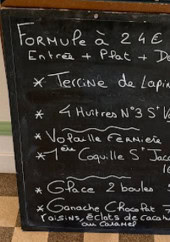 FORMULE à 24€
Entrée + Plat + D
* Terrine de Lapi
* 4 Huîtres N°3 St V
* Volaille Fermière
* 1ère Coquille St Jac
* Glace 2 boules
* Ganache Chocolat
raisins, éclats de caca
au caramel